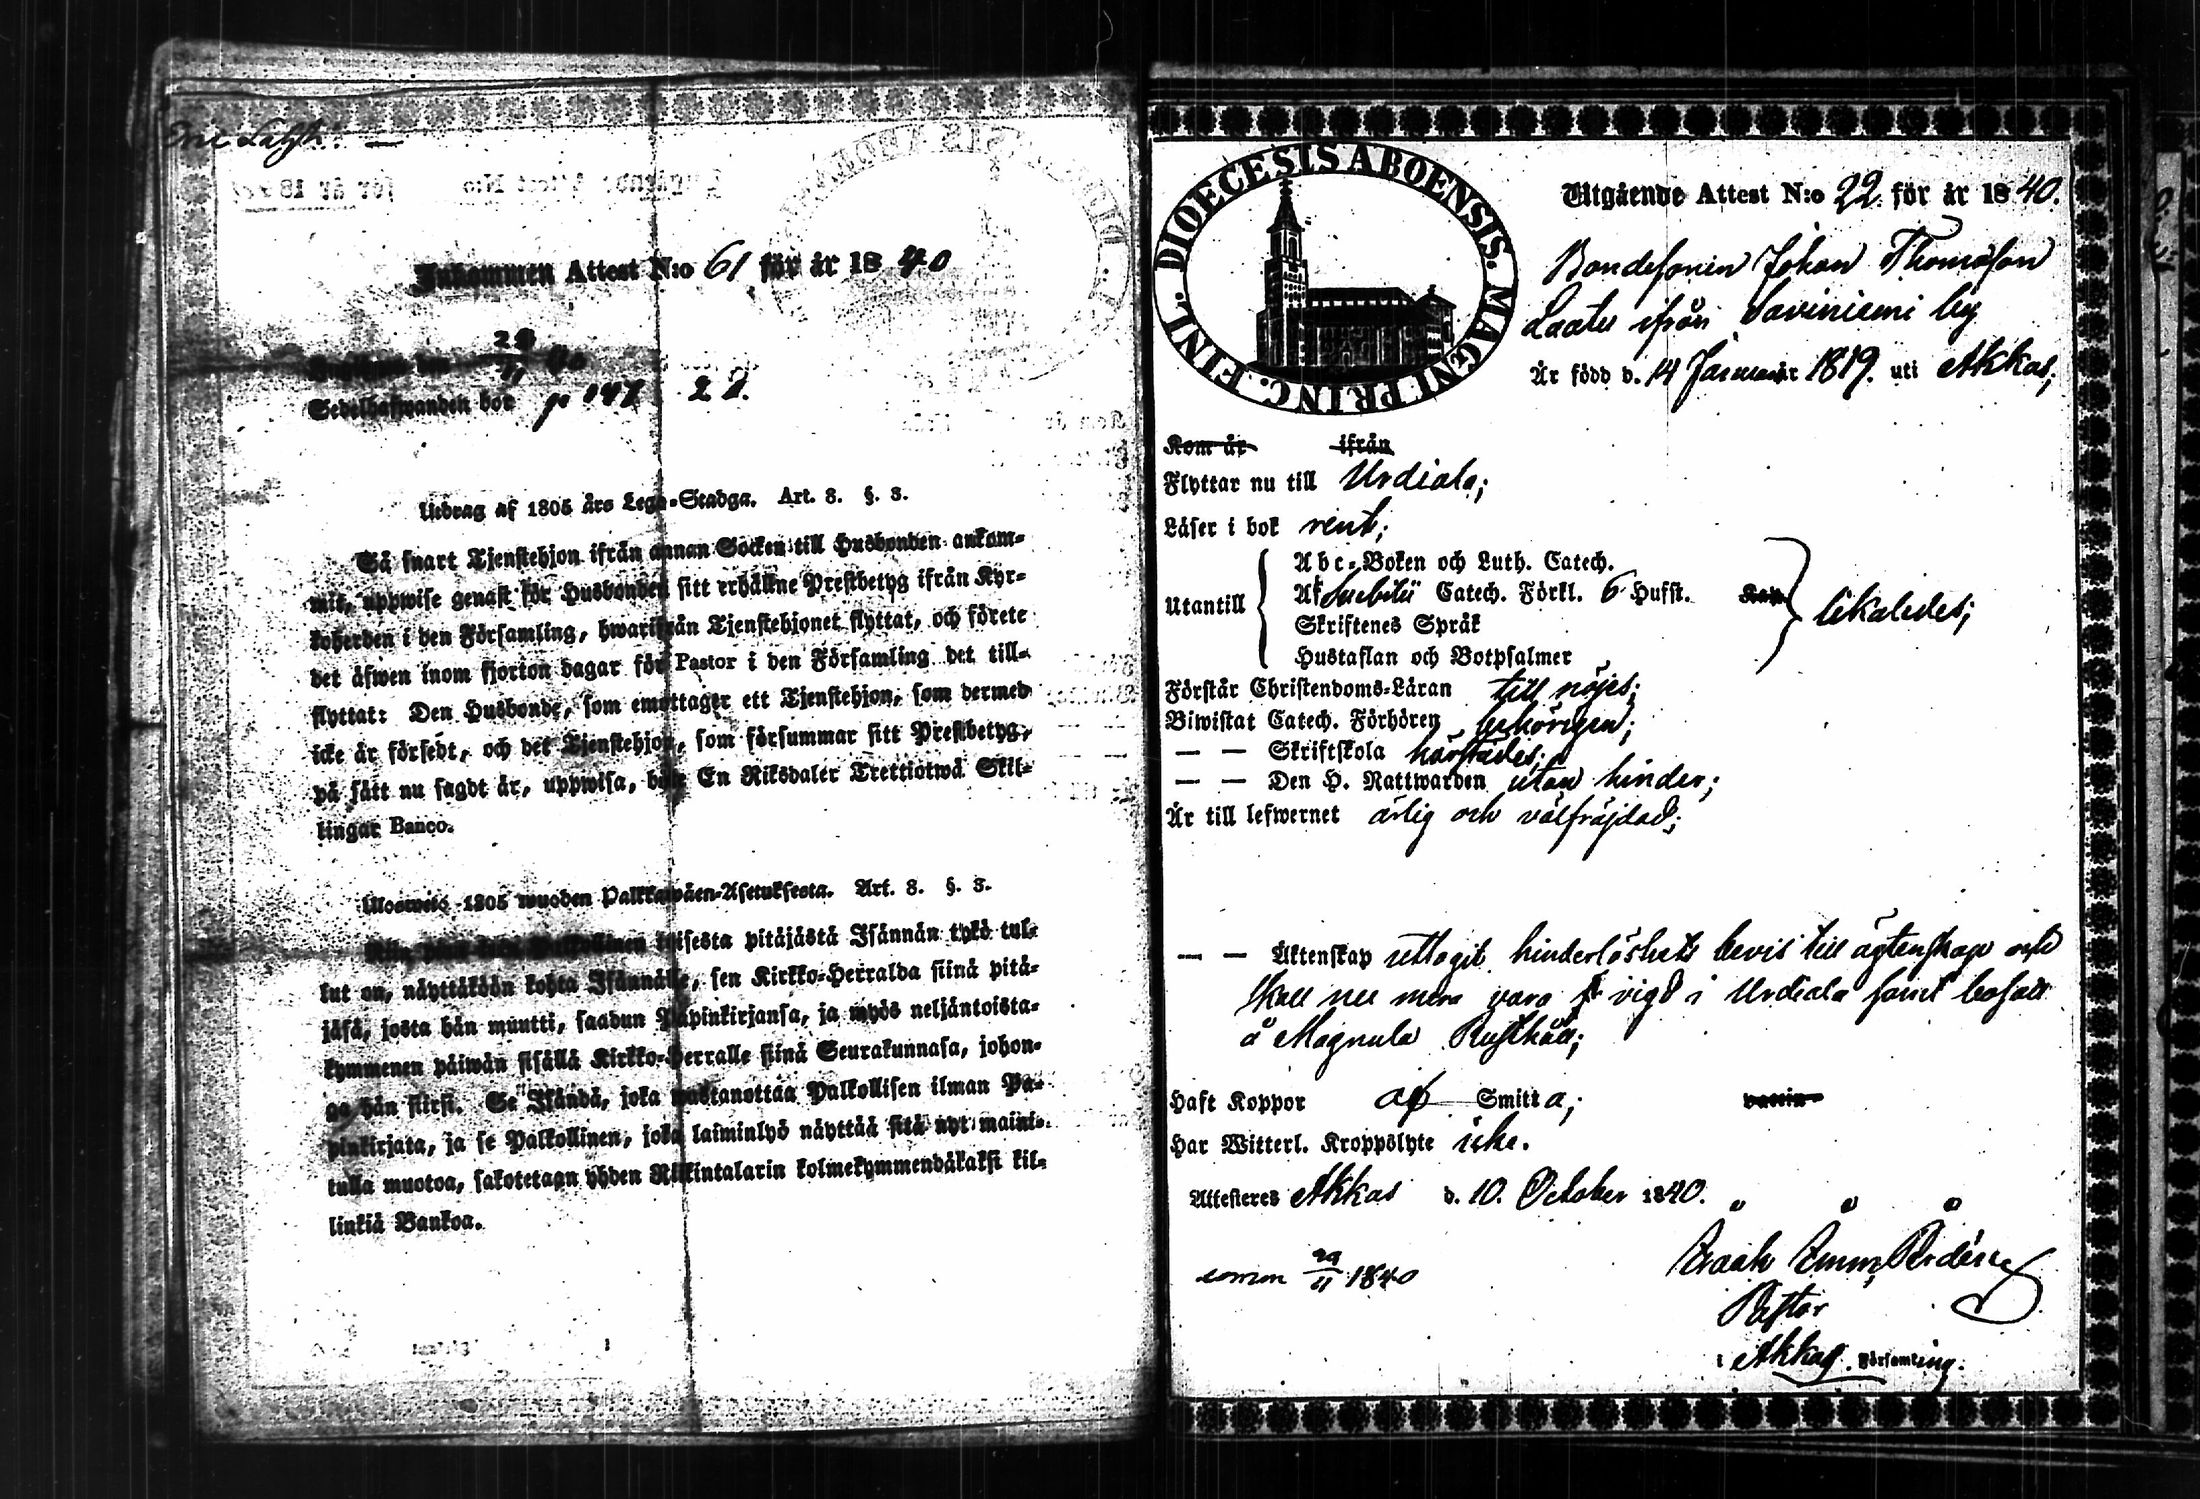 Inkommen Attest N:o 61 för år 1840
29/11 40
Sedelhafwanden bor p 147 22.
Utdrag af 1805 års Lego-Stadga. Art. 3. §. 3.
Så snart Tjenstehjon ifrån annan Socken till Husbonden ankom-
mit, uppwise genast för Husbonden sitt erhållne Prestbetyg ifrån Kyr-
koherden i den Församling, hwarifrån Tjenstehjonet flyttat, och förete
det äfwen inom fjorton dagar för Pastor i den Församling det till-
flyttat: Den Husbonde, som emottager ett Tjenstehjon, som dermed
icke är försedt, och det Tjenstehjon, som försummar sitt Prestbetyg,
på sätt nu sagdt är, uppwisa, böte En Riksdaler Trettiotwå Skil-
lingar Banco.
Ulosweto 1805 wuoden Palkkawäen-Asetuksesta. Art. 3. §. 3.
Palkollinen toisesta pitäjästä Isännän tykö tul-
lut on, näyttäköön kohta Isännälle, sen Kirkko-Herralda siinä pitä-
jäsä, josta hän muutti, saadun Papinkirjansa, ja myös neljäntoista-
kymmenen päiwän sisällä Kirkko-Herralle siinä Seurakunnasa, johon-
ga hän siirsi. Se Isändä, joka wastanottaa Palkollisen ilman Pa-
pinkirjata, ja se Palkollinen, joka laiminlyö näyttää sitä nyt maini-
tulla muotoa, sakotetaan yhden Riikintalarin kolmekymmendäkaksi kil-
linkiä Bankoa.
DIOECESIS ABOENSIS. MAGNI PRINC. FINL.
Utgående Attest N:o 22. för år 1840.
Bondesonen Johan Thomasson
Laatu ifrån Saviniemi by
Är född d. 14 Januar 1819. uti Akkas;
Kom år ifrån
Flyttar nu till Urdiala;
Läser i bok rent;
Utantill
Abc-Boken och Luth. Catech.
Af Svebilii Catech. Förkl. 6 Hufst. Kap
Skriftenes Språk
Hustaflan och Botpsalmer
likaledes;
Förstår Christendoms-Läran till nöjes;
Biwistat Catech. Förhören behörigen;
— — Skriftskola härstädes;
— — Den H. Nattwarden utan hinder;
Är till lefwernet ärlig och välfräjdad;
— — Äktenskap uttagit hinderlöshets bevis till ägtenskap och
skall nu mera vara vigd i Urdiala samt bosatt
å Magnula Rusthåll;
Haft Koppor af Smitta; vaccin
Har Witterl. Kroppslyte icke.
Attesteres Akkas d. 10. October 1840.
Isaak Imm.
Pastor
i Akkas Församling.
29/11 1840